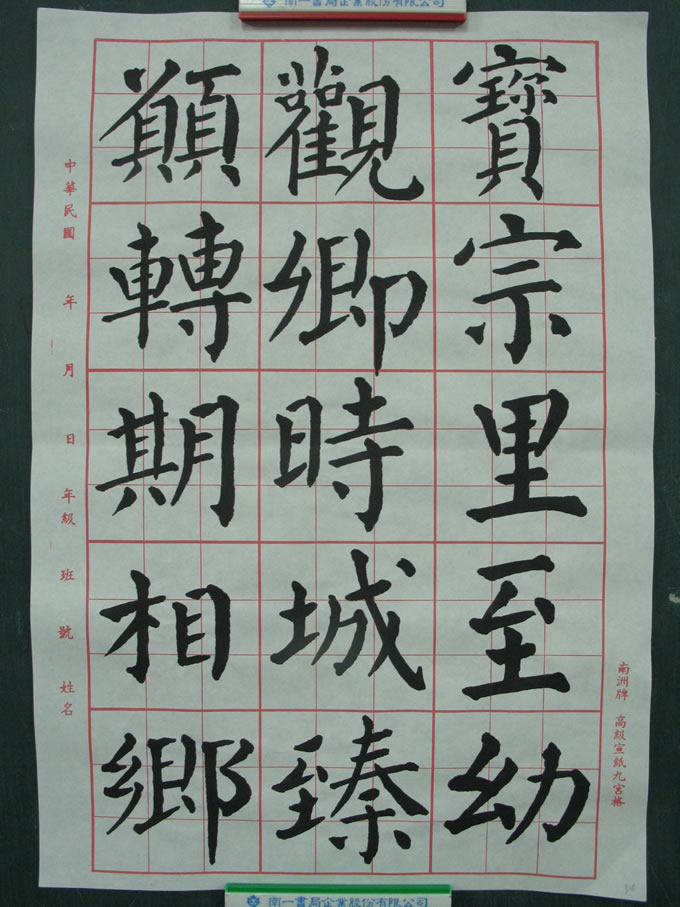 南一書局企業股份有限公司
寶宗里至幼
觀卿時城臻
顛轉期相鄉
中華民國 年 月 日 年級 班 號 姓名
南洲牌 高級宣紙九宮格
南一書局企業股份有限公司